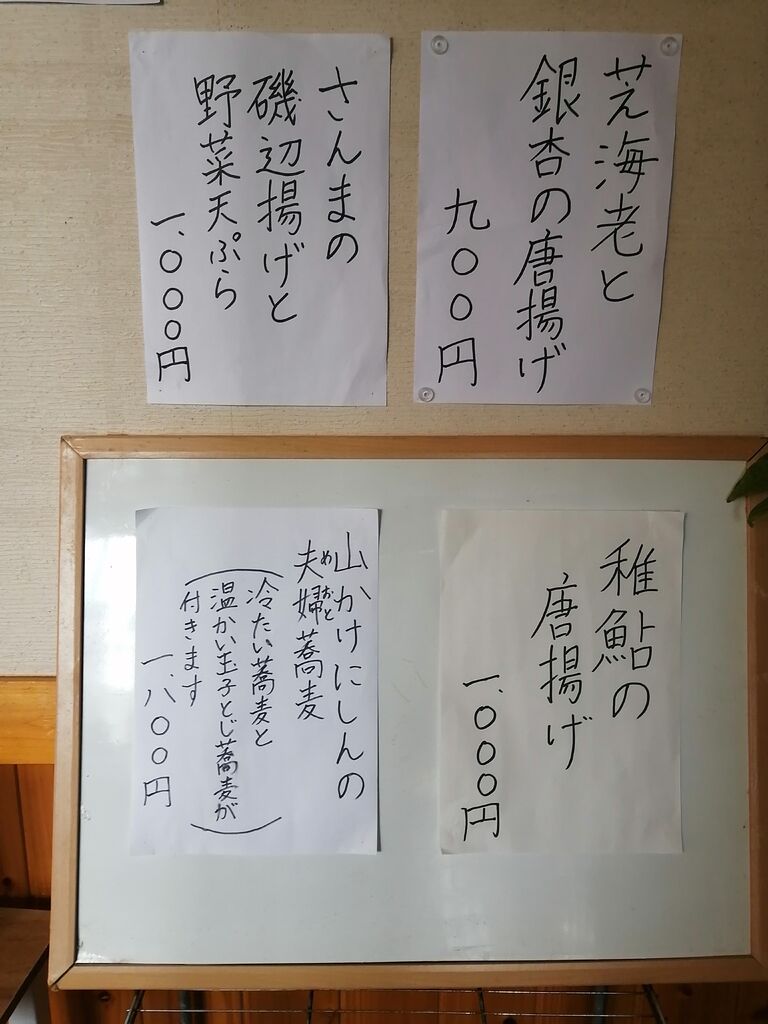 芝海老と
銀杏の唐揚げ
九〇〇円
さんまの
磯辺揚げと
野菜天ぷら
一、〇〇〇円
稚鮎の
唐揚げ
一、〇〇〇円
山かけにしんの
夫婦蕎麦
めおと
(冷たい蕎麦と
温かい玉子とじ蕎麦が
付きます)
一、八〇〇円